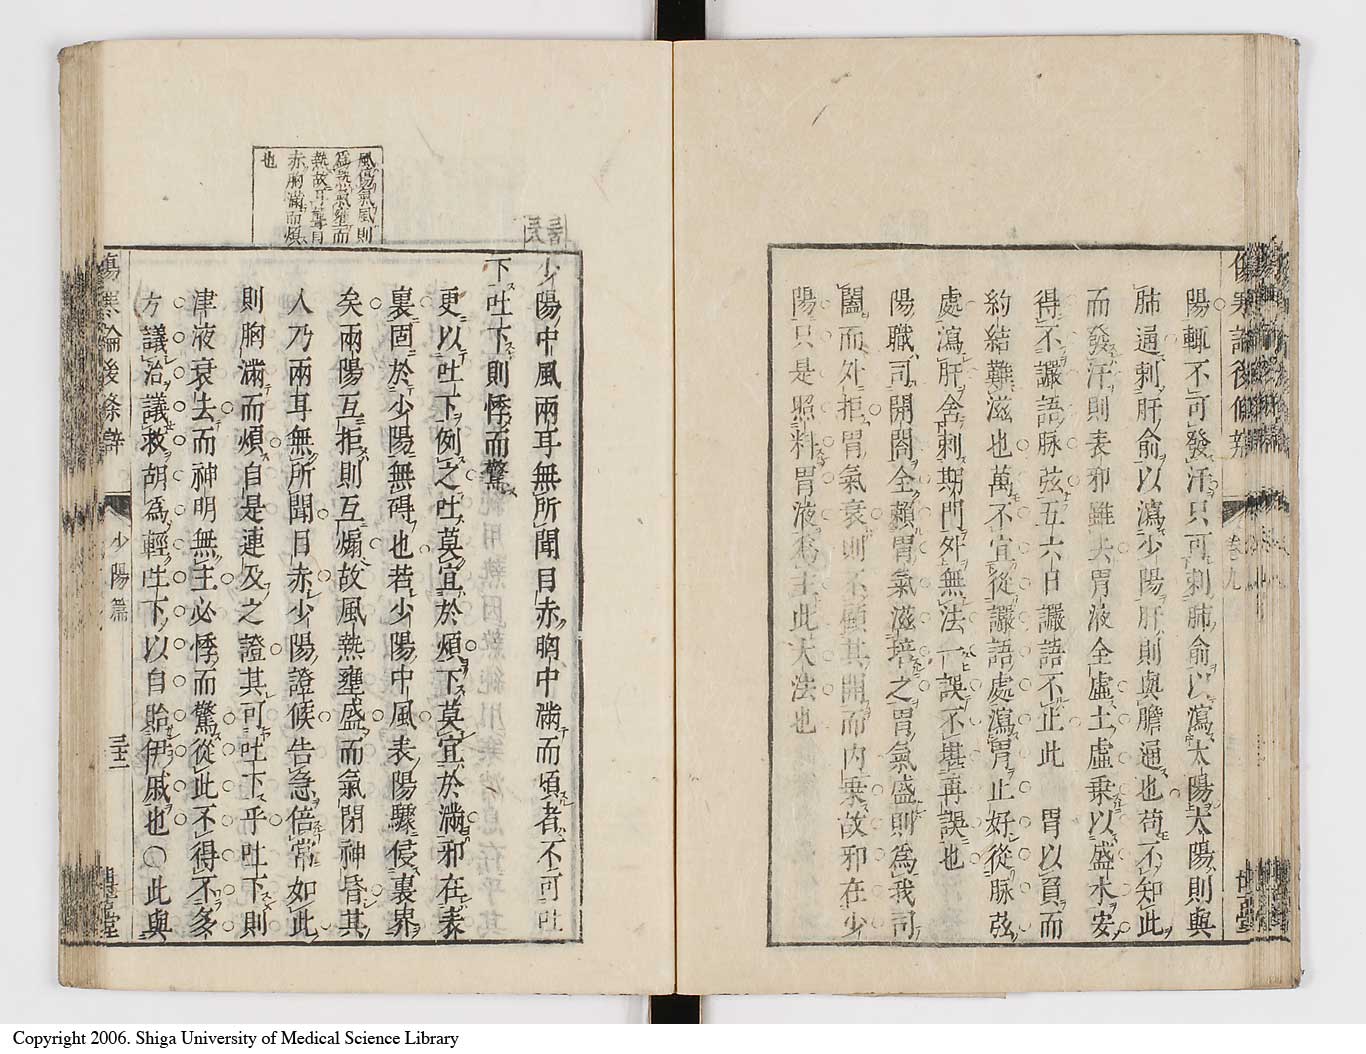 陽輒不可發汗只可刺肺俞以瀉太陽太陽則與
肺通刺肝俞以瀉少陽肝則與膽通也苟不知此
而發汗則表邪雖去胃液全虛土虛乘以盛木安
得不讝語脉弦五六日讝語不止此 胃以負而
約結難滋也萬不宜從讝語處瀉胃止好從脉弦
處瀉肝舍刺期門外無法一誤不堪再誤也
陽職司開閤全賴胃氣滋培之胃氣盛則爲我司
闔而外拒胃氣衰則不願其開而內乘故邪在少
陽只是照料胃液爲主此大法也
卷九
少陽中風兩耳無所聞目赤胸中滿而煩者不可吐
下吐下則悸而驚
更以吐下例之吐莫宜於煩下莫宜於滿邪在表
裏固於少陽無碍也若少陽中風表陽驟侵裏界
矣兩陽互拒則互煽故風熱壅盛而氣閉神昏其
人乃兩耳無所聞目赤少陽證候告急倍常如此
則胸滿而煩自是連及之證其可吐下乎吐下則
津液衰去而神明無主必悸而驚從此不得不多
方議治議救胡爲輕吐下以自貽伊戚也○此與
風傷氣風則
爲熱氣壅而
熱故耳聾目
赤胸滿而煩
也
傷寒論後條辨
少陽篇
三十二